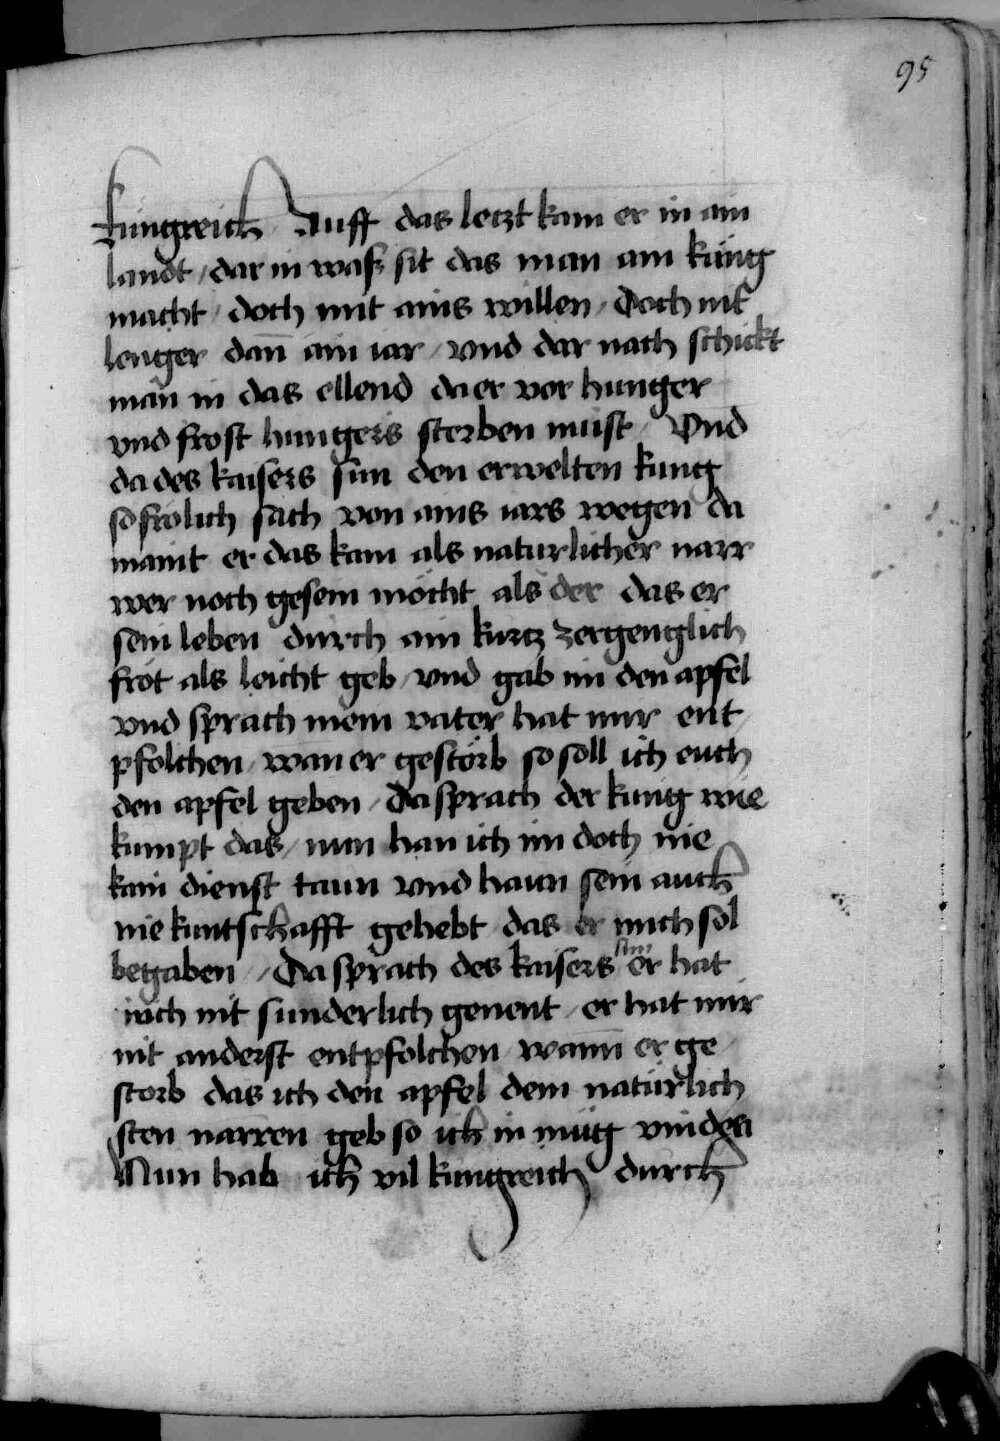 95
kungreich Auff das letzt kam er in ain
landt / dar in waß sit das man ain kung
macht / doch mit ains willen / Doch nit
lenger dan̄ ain iar / vnd dar nach schickt
man in das ellend da er vor hunger
vnd frost hungers sterben must / Vnd
da des kaisers sun den erwelten kung
so frolich sach von ains iars wegen da
maint er das kain als naturlicher narr
wer noch gesein möcht als der das er
sein leben durch ain kurtz zergenglich
fröt als leicht geb / vnd gab im den apfel
vnd sprach mein vater hat mir ent
pfolchen / wan er gestörb so soll ich euch
den apfel geben / Da sprach der kung wie
kumpt das / nun han ich im doch nie
kain dienst taun vnd haun sein auch
nie kuntschafft gehebt das er mich sol
begaben / Da sprach des kaisers sun er hat
iuch nit sunderlich genent / er hat mir
nit anderst entpfolchen wann̄ er ge
storb das ich den apfel dem natürlich
sten narren geb so ich in müg vinden
Nun hab ich vil kungreich durch